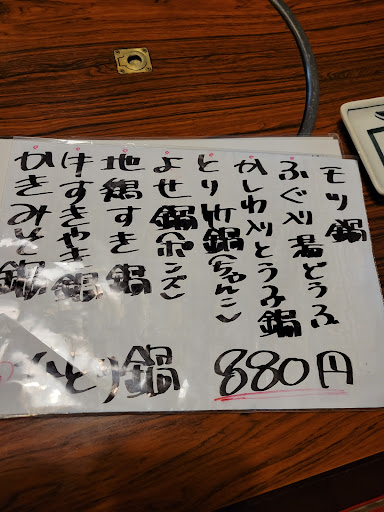 モツ鍋
ふぐ入湯どうふ
かしわ入とうふ鍋
とり鍋(ちゃんこ)
よせ鍋(ポンズ)
地鶏すき鍋
牛すきやき鍋
かきみそ鍋
鍋 880円